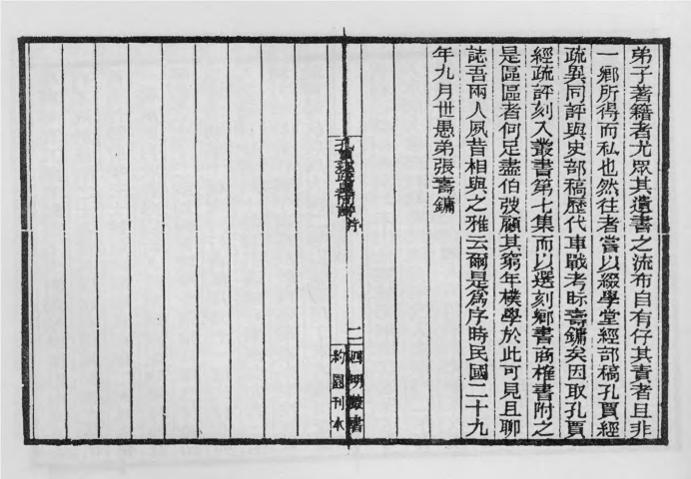 弟子著籍者尤眾其遺書之流布自有仔其責者且非
一鄉所得而私也然往者嘗以綴學堂經部稿孔賈經
疏異同評與史部稿歷代車戰考眎壽鏞矣因取孔賈
經疏評刻入叢書第七集而以選刻鄉書商榷書附之
是區區者何足盡伯弢顧其窮年樸學於此可見且聊
誌吾兩人夙昔相與之雅云爾是爲序時民國二十九
年九月世愚弟張壽鏞
序
二
四明叢書
約園刊本